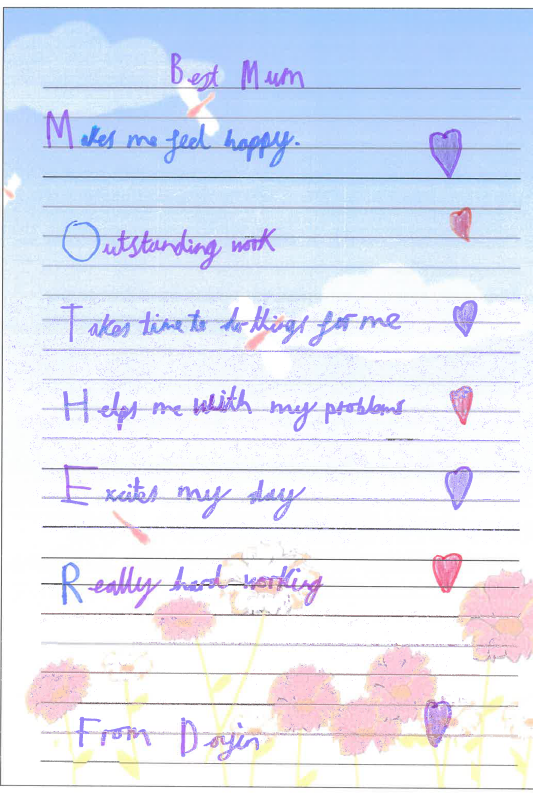 Best Mum
Makes me feel happy.
Outstanding work
Takes time to do things for me
Helps me with my problems
Excites my day
Really hard working
From Doyin